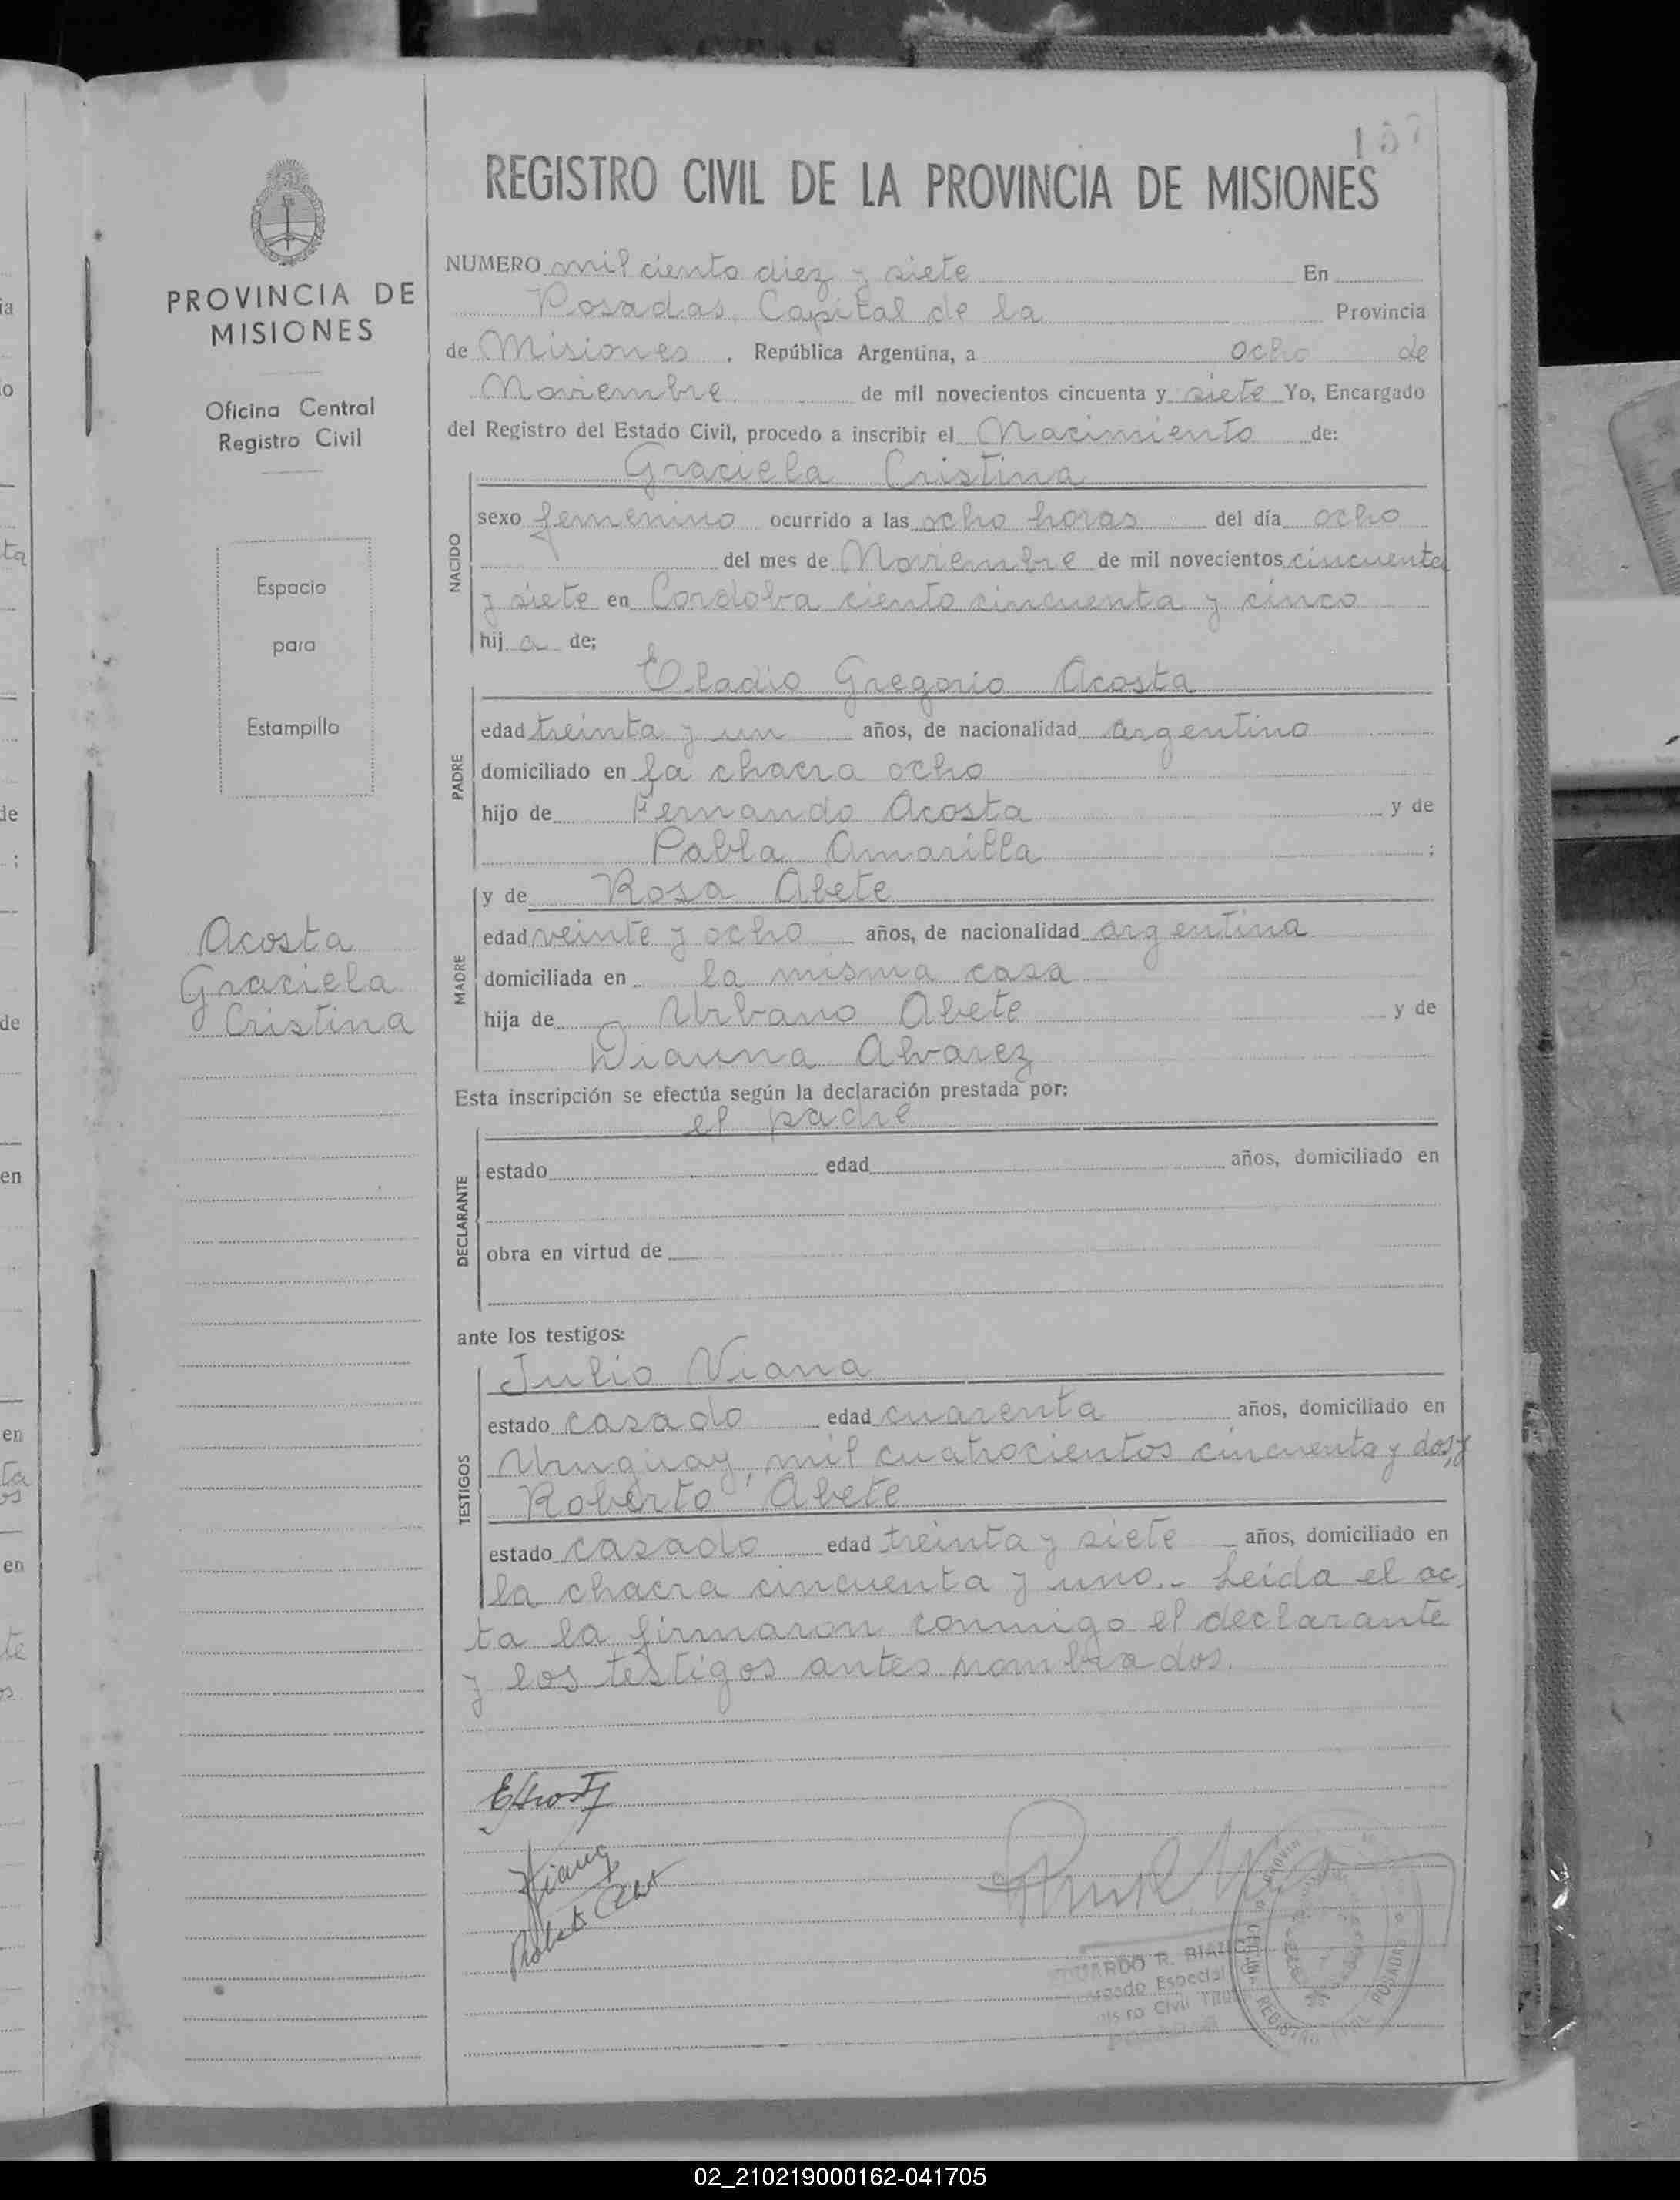 REGISTRO CIVIL DE LA PROVINCIA DE MISIONES
PROVINCIA DE
MISIONES
Oficina Central
Registro Civil
Espacio
para
Estampilla
Acosta
Graciela
Cristina
NUMERO mil ciento diez y siete En
Posadas, Capital de la Provincia
de Misiones, República Argentina, a ocho de
Noviembre de mil novecientos cincuenta y siete Yo, Encargado
del Registro del Estado Civil, procedo a inscribir el Nacimiento de:
Graciela Cristina
NACIDO
sexo femenino ocurrido a las ocho horas del día ocho
del mes de Noviembre de mil novecientos cincuenta
y siete en Cordoba ciento cincuenta y cinco
hij a de;
Eladio Gregorio Acosta
PADRE
edad treinta y un años, de nacionalidad argentino
domiciliado en la chacra ocho
hijo de Fernando Acosta y de
Pabla Amarilla ;
y de Rosa Abete
MADRE
edad veinte y ocho años, de nacionalidad argentina
domiciliada en la misma casa
hija de Urbano Abete y de
Dianna Alvarez
Esta inscripción se efectúa según la declaración prestada por:
el padre
DECLARANTE
estado edad años, domiciliado en
obra en virtud de
ante los testigos:
Julio Viana
TESTIGOS
estado casado edad cuarenta años, domiciliado en
Uruguay, mil cuatrocientos cincuenta y dos, y
Roberto Abete
estado casado edad treinta y siete años, domiciliado en
la chacra cincuenta y uno.- Leida el ac
ta la firmaron conmigo el declarante
y los testigos antes nombrados.
02_210219000162-041705